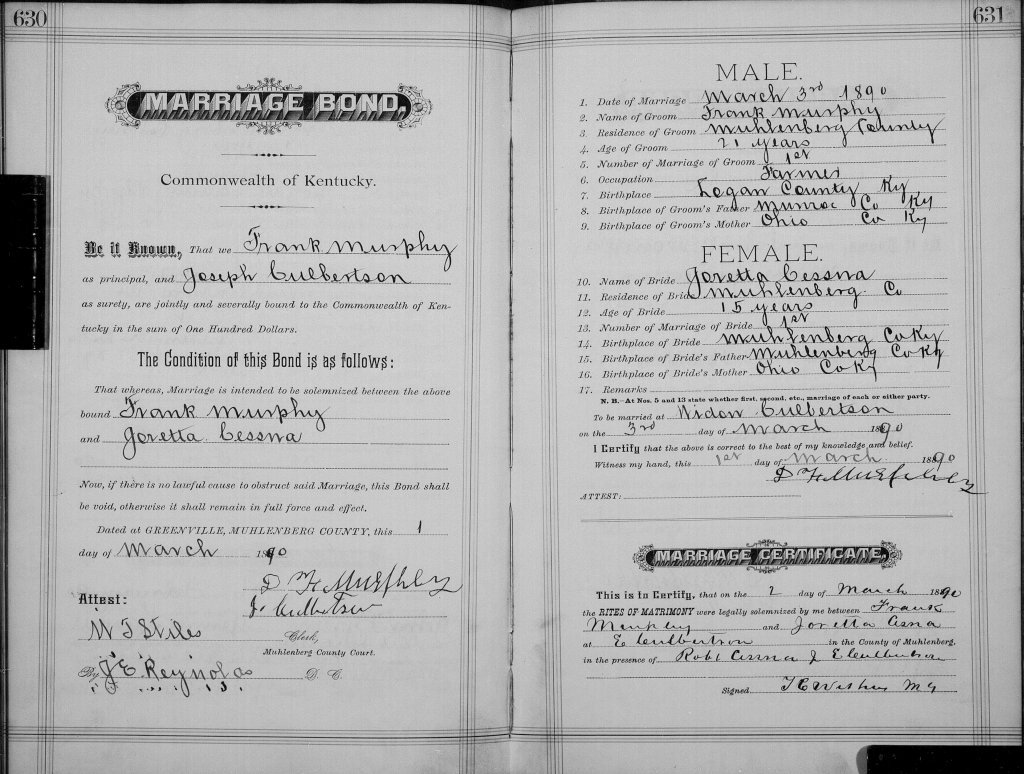 630
MARRIAGE BOND.
Commonwealth of Kentucky.
Be it Known, That we Frank Murphy
as principal, and Joseph Culbertson
as surety, are jointly and severally bound to the Commonwealth of Ken-
tucky in the sum of One Hundred Dollars.
The Condition of this Bond is as follows:
That whereas, Marriage is intended to be solemnized between the above
bound Frank Murphy
and Joretta Cessna
Now, if there is no lawful cause to obstruct said Marriage, this Bond shall
be void, otherwise it shall remain in full force and effect.
Dated at GREENVILLE, MUHLENBERG COUNTY, this 1
day of March 1890
D F Murphy
J. Culbertson
Attest:
W T Stiles Clerk,
Muhlenberg County Court.
By J E Reynolds D. C.
631
MALE.
1. Date of Marriage March 3rd 1890
2. Name of Groom Frank Murphy
3. Residence of Groom Muhlenberg County
4. Age of Groom 21 years
5. Number of Marriage of Groom 1st
6. Occupation Farmer
7. Birthplace Logan County Ky
8. Birthplace of Groom's Father Munroe Co Ky
9. Birthplace of Groom's Mother Ohio Co Ky
FEMALE.
10. Name of Bride Joretta Cessna
11. Residence of Bride Muhlenberg Co
12. Age of Bride 15 years
13. Number of Marriage of Bride 1st
14. Birthplace of Bride Muhlenberg Co Ky
15. Birthplace of Bride's Father Muhlenberg Co Ky
16. Birthplace of Bride's Mother Ohio Co Ky
17. Remarks
N. B.—At Nos. 5 and 13 state whether first, second, etc., marriage of each or either party.
To be married at Widow Culbertson
on the 3rd day of March 1890
I Certify that the above is correct to the best of my knowledge and belief.
Witness my hand, this 1st day of March 1890
D F Murphy
ATTEST:
MARRIAGE CERTIFICATE.
This is to Certify, that on the 2 day of March 1890
the RITES OF MATRIMONY were legally solemnized by me between Frank
Murphy and Joretta Cesna
at E Culbertson in the County of Muhlenberg,
in the presence of Robt Cessna J E Culbertson
Signed